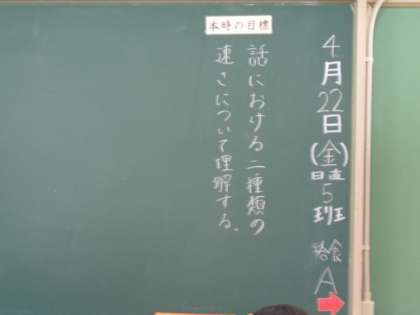 4月22日(金)
日直5班
給食A
本時の目標
話における二種類の
速さについて理解する。